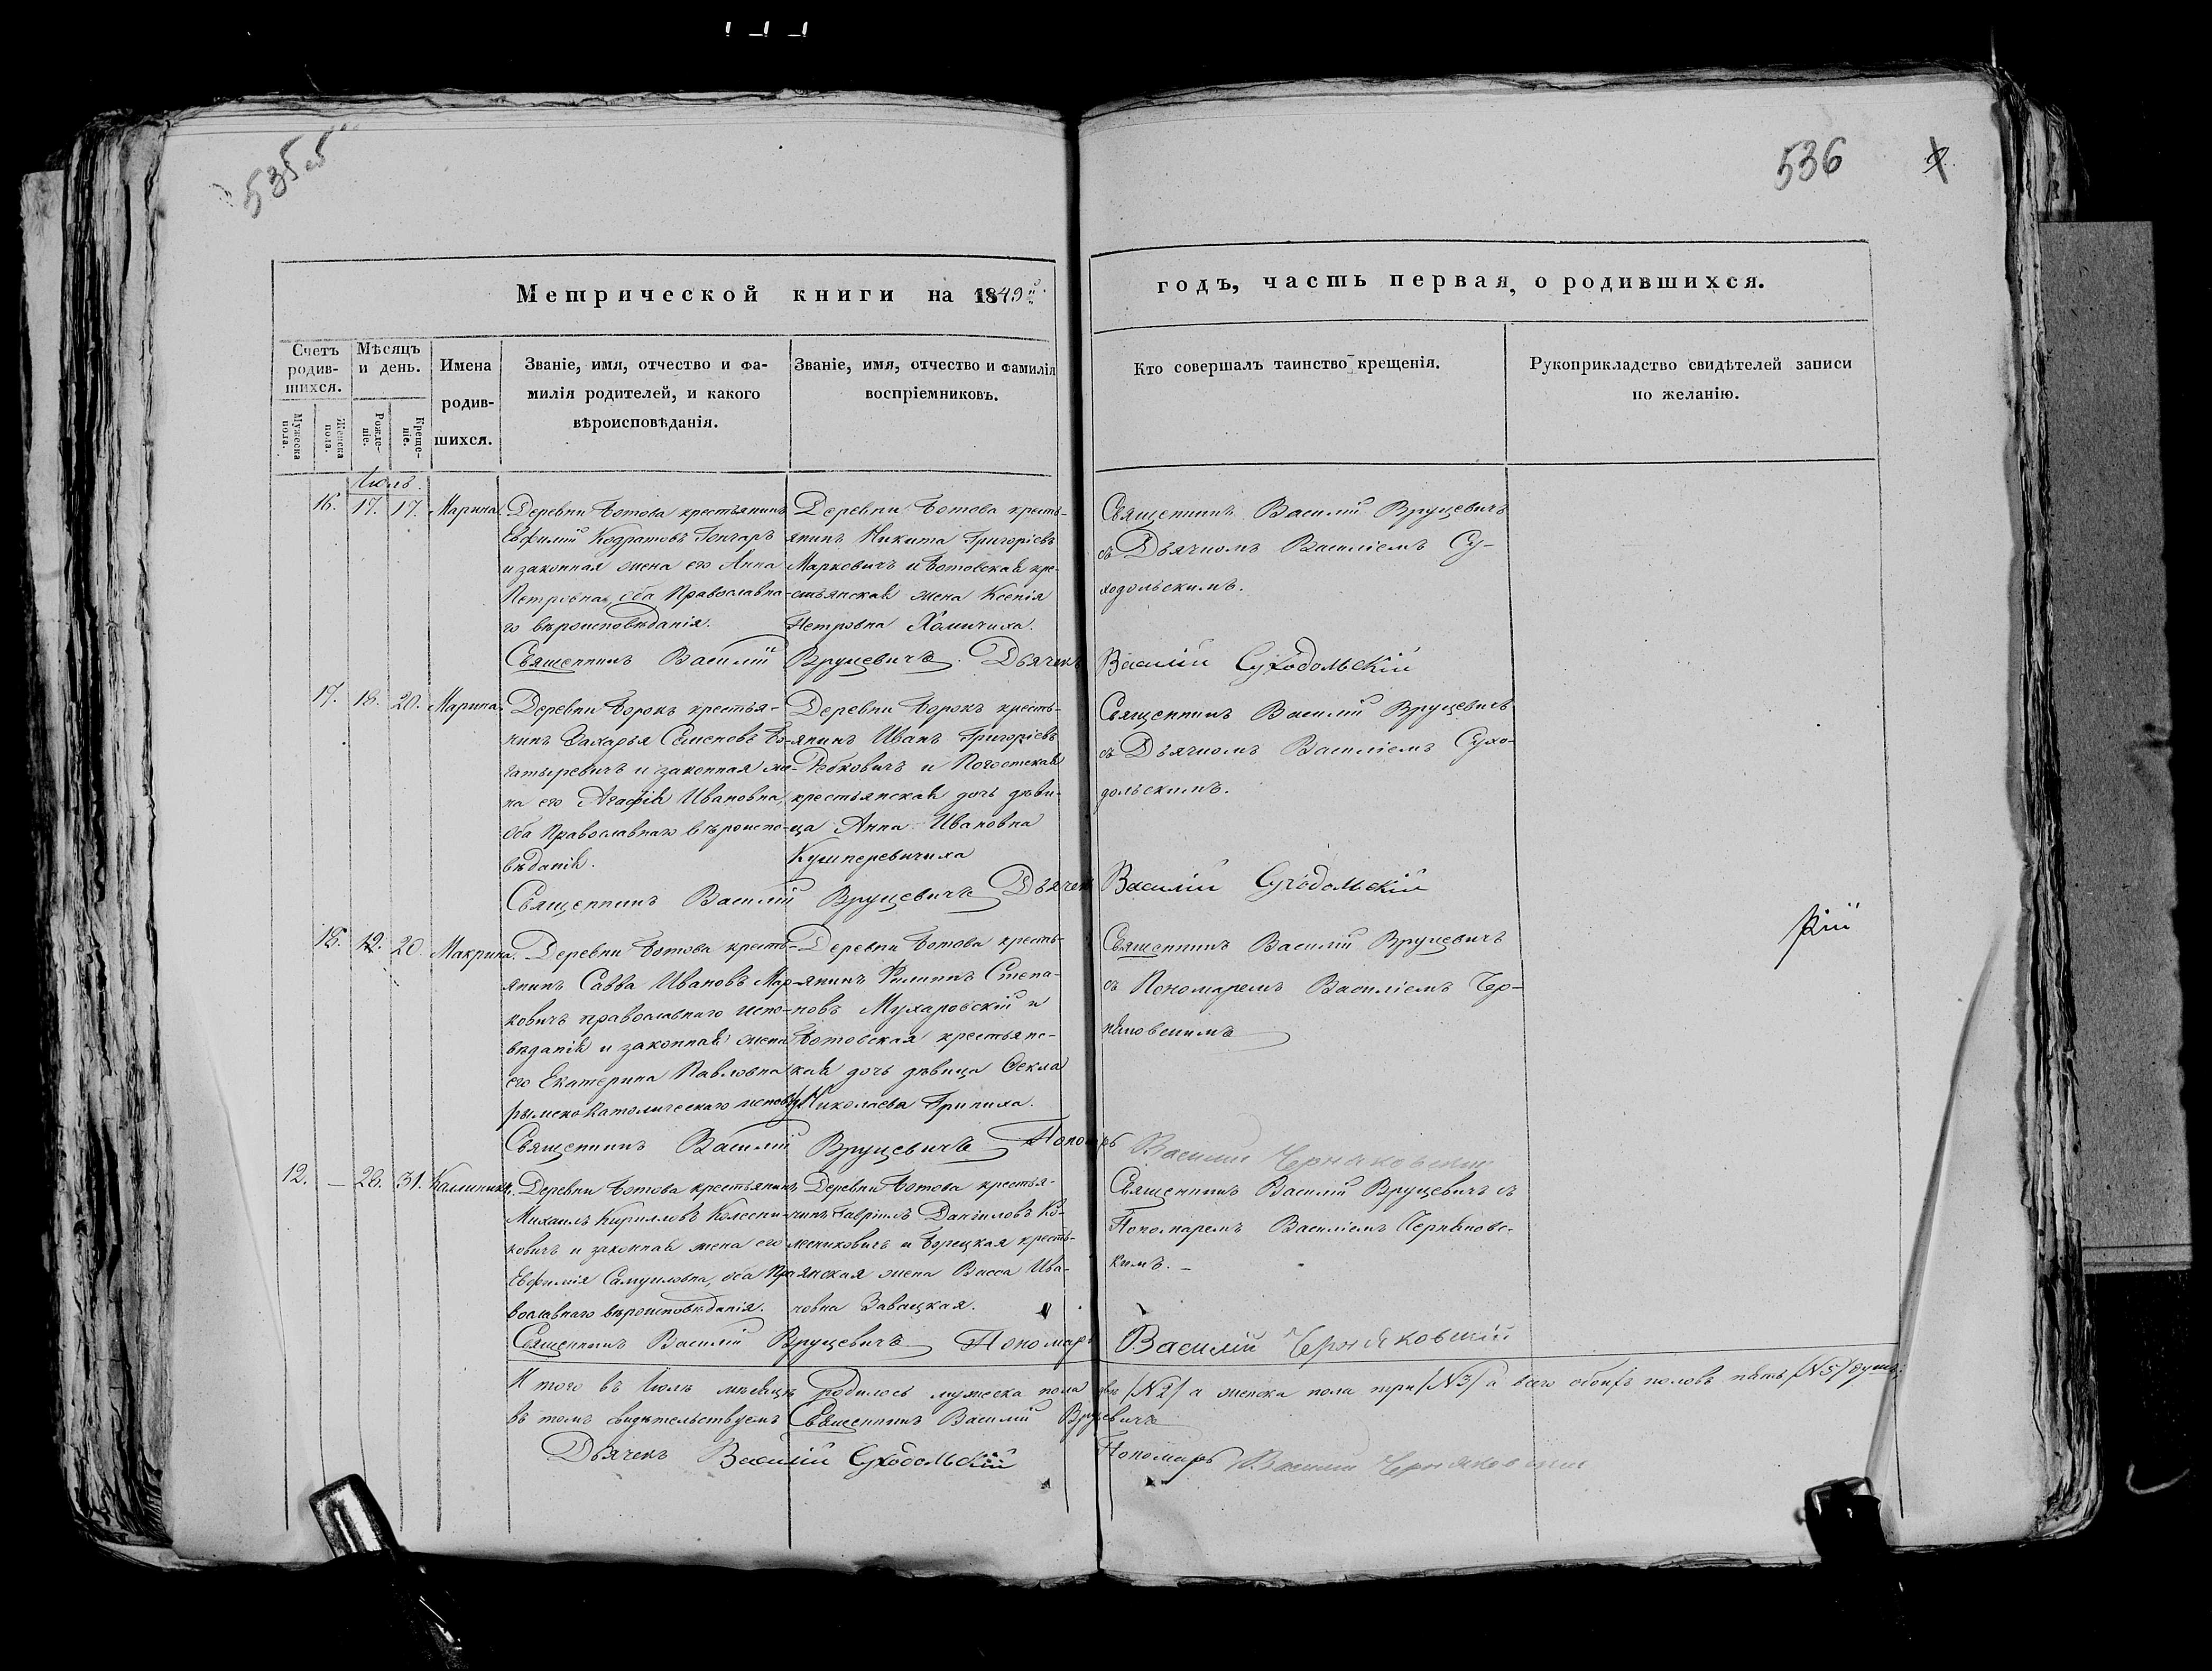 535 об
536
Метрической книги на 1849й годъ, часть первая, о родившихся.
Счетъ родив-шихся.
Мѣсяцъ и день.
Имена родив-шихся.
Званіе, имя, отчество и фа-
милія родителей, и какого
вѣроисповѣданія.
Званіе, имя, отчество и фамилія
воспріемниковъ.
Кто совершалъ таинство крещенія.
Рукоприкладство свидѣтелей записи
по желанію.
Мужеска пола.
Женска пола.
Рожде-ніе.
Креще-ніе.
Іюль.
16. 17. 17. Марина.
Деревни Ботова крестьянинъ
Евфимій Кодратовъ Гончаръ
и законная жена его Анна
Петровна, оба Православна-
го вѣроисповѣданія.
Деревни Ботова кресть-
янинъ Никита Григоріевъ
Марковичъ и Ботовская кре-
стьянская жена Ксенія
Петровна Хомичиха.
Священникъ Василій Вруцевичъ
съ Дьячкомъ Василіемъ Су-
ходольскимъ.
Священникъ Василій Вруцевичъ. Дьячекъ Василій Суходольскій
17. 18. 20. Марина.
Деревни Борокъ крестья-
нинъ Захарья Семеновъ Бо-
гатыревичъ и законная же-
на его Агафія Ивановна,
оба Православнаго вѣроиспо-
вѣданія.
Деревни Борокъ кресть-
янинъ Иванъ Григоріевъ
Рабковичъ и Погостская
крестьянская дочь дѣви-
ца Анна Ивановна
Кушперевичиха
Священникъ Василій Вруцевичъ
съ Дьячкомъ Василіемъ Сухо-
дольскимъ.
Священникъ Василій Вруцевичъ Дьячекъ Василій Суходольскій
18. 19. 20. Макрина.
Деревни Ботова кресть-
янинъ Савва Ивановъ Мар-
ковичъ православнаго испо-
вѣданія и законная жена
его Екатерина Павловна
рымскокатолическаго исповѣд.
Деревни Ботова кресть-
янинъ Филиппъ Степа-
новъ Мухаровскій и
Ботовская крестьянс-
кая дочь дѣвица Фекла
Николаева Грипиха.
Священникъ Василій Вруцевичъ
съ Пономаремъ Василіемъ Чер-
няковскимъ
Священникъ Василій Вруцевичъ Пономарь Василій Черняковскій
12. — 28. 31. Каллиникъ.
Деревни Ботова крестьянинъ
Михаилъ Кирилловъ Колесни-
ковичъ и законная жена его
Евфимія Самуиловна, оба Пра-
вославнаго вѣроисповѣданія.
Деревни Ботова крестья-
нинъ Гавріилъ Даніиловъ Ко-
лесниковичъ и Борецкая кресть-
янская жена Васса Ива-
новна Завацкая.
Священникъ Василій Вруцевичъ съ
Пономаремъ Василіемъ Черняковс-
кимъ. —
Священникъ Василій Вруцевичъ Пономарь Василій Черняковскій
И того въ Іюлѣ мѣсяцѣ родилось мужеска пола два /№2/ а женска пола три /№3/ а всего обоихъ половъ пять /№5/ душъ;
въ томъ свидѣтельствуемъ Священникъ Василій Вруцевичъ
Дьячекъ Василій Суходольскій Пономарь Василій Черняковскій